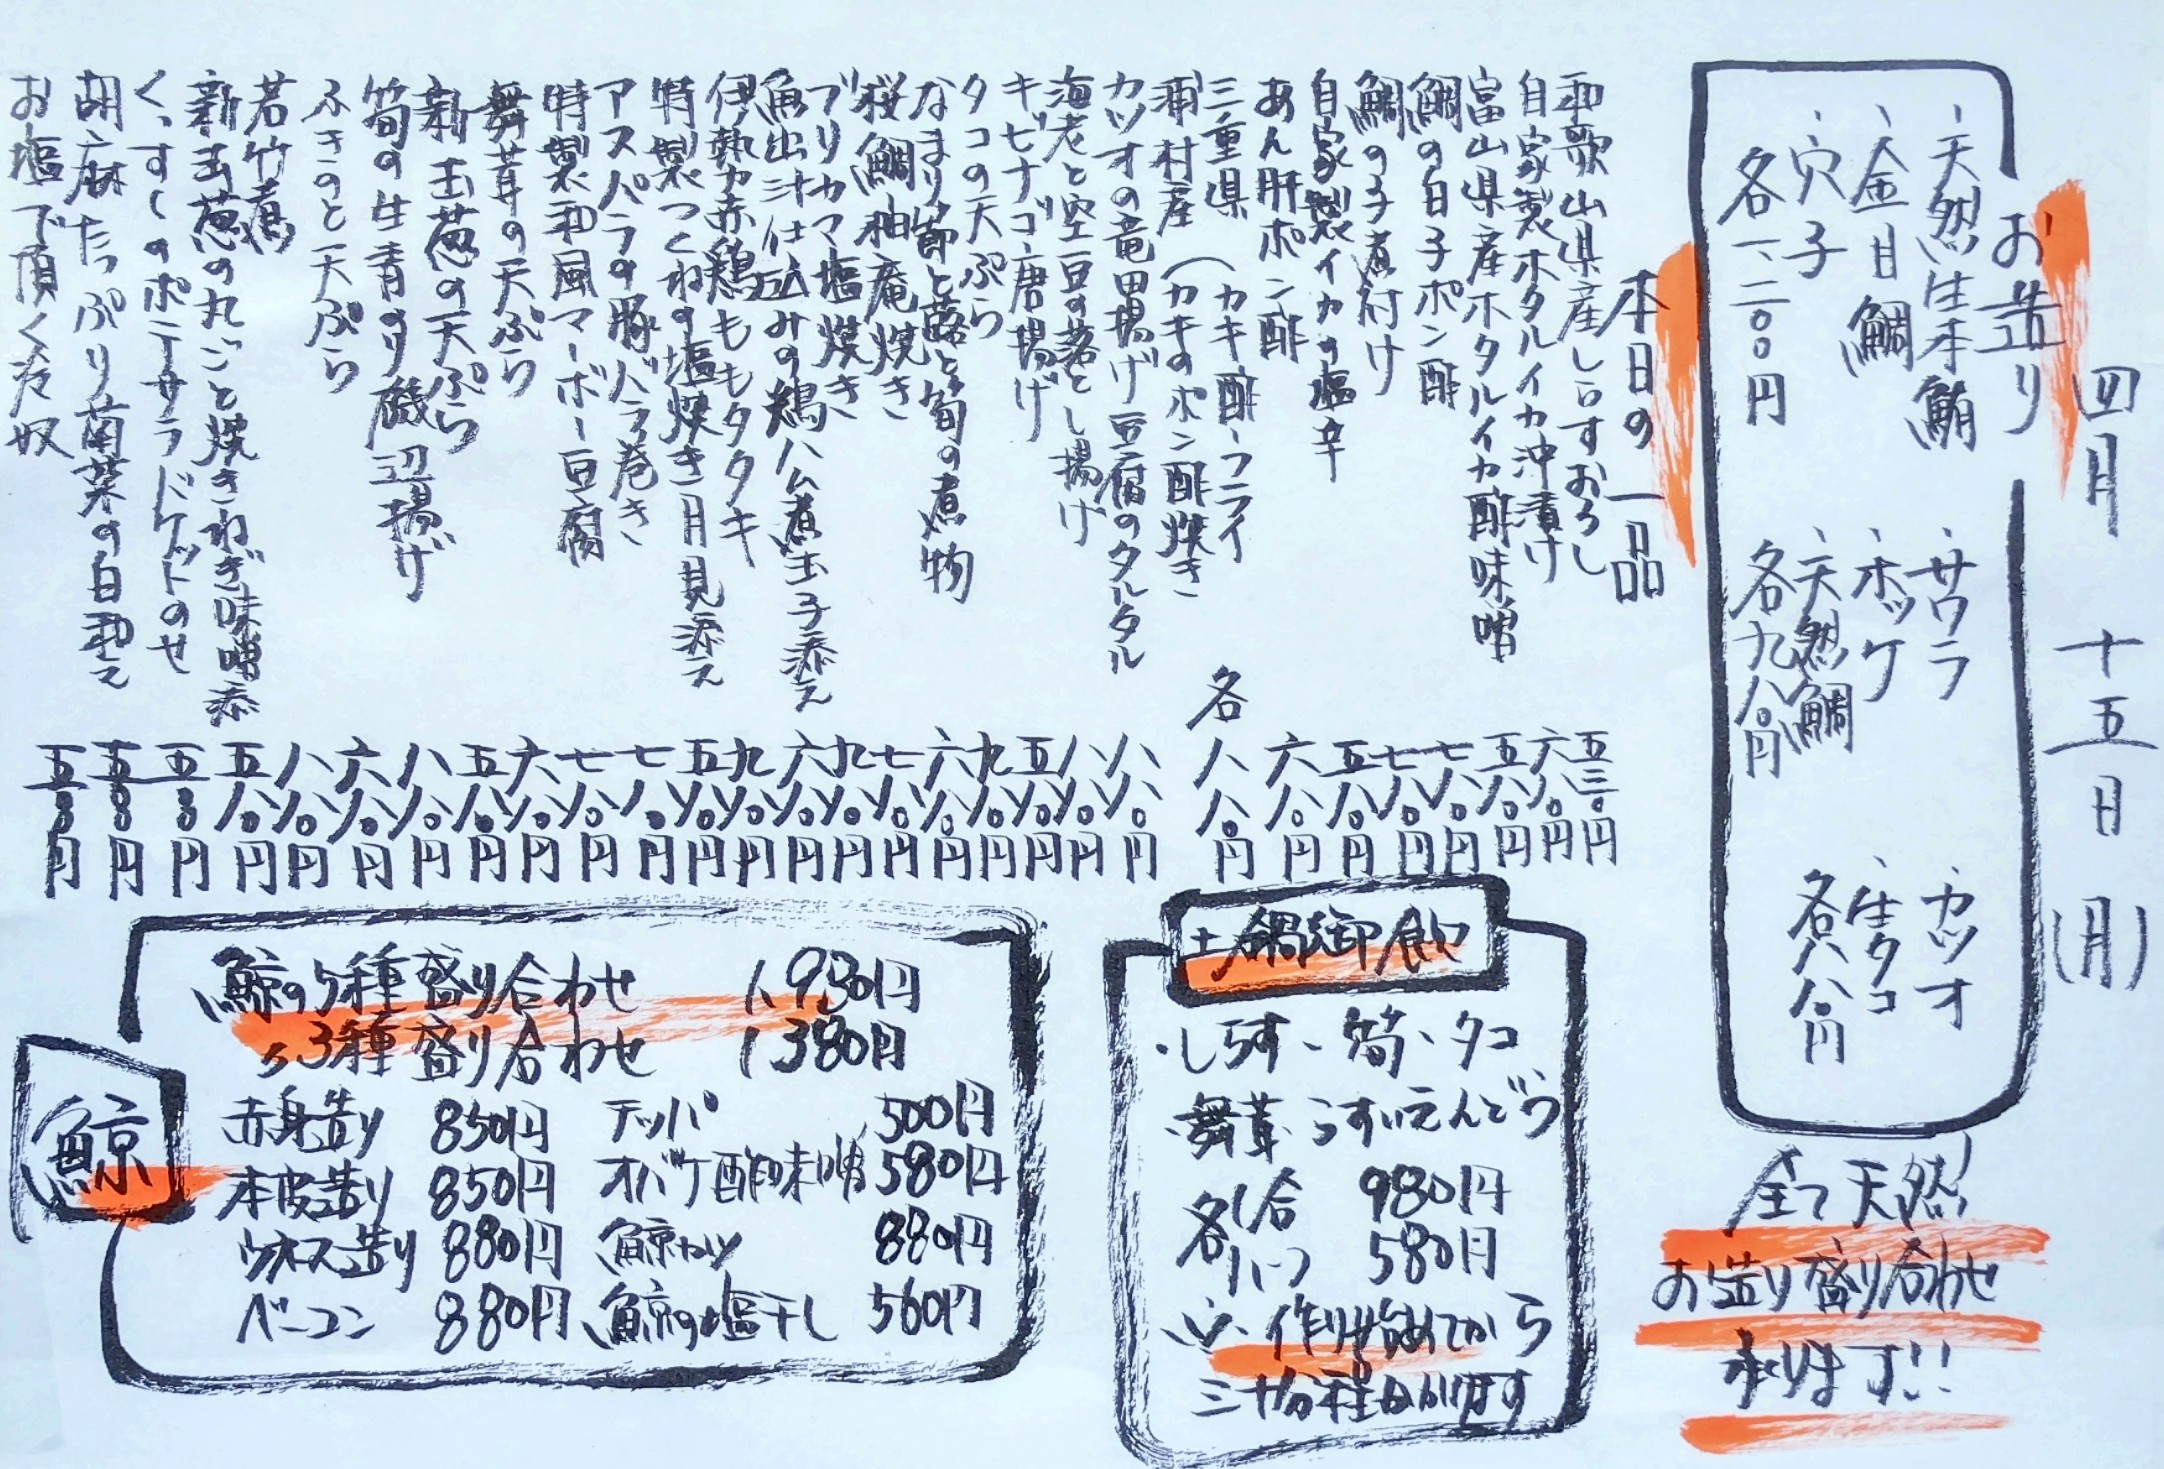 四月 十五日 (月)
お造り
・天然生本鮪
・金目鯛
・穴子
各一、二〇〇円
・サワラ
・ホッケ
・天然鯛
各九八〇円
・カツオ
・生タコ
各八八〇円
全て天然!
お造り盛り合わせ
承ります!!
本日の一品
和歌山県産しらすおろし 五三〇円
自家製ホタルイカ沖漬け 六八〇円
富山県産ホタルイカ酢味噌 五八〇円
鯛の白子ポン酢 七八〇円
鯛の子煮付け 七八〇円
自家製イカの塩辛 五八〇円
あん肝ポン酢 六八〇円
三重県 (カキ酢・フライ 各八八〇円
浦村産 (カキのポン酢焼き
カツオの竜田揚げ豆腐のタルタル 八八〇円
海老と空豆の落とし揚げ 八八〇円
キビナゴ唐揚げ 五八〇円
タコの天ぷら 九八〇円
なまり節と蕗と筍の煮物 六八〇円
桜鯛柚庵焼き 七八〇円
ブリカマ塩焼き 九八〇円
魚出汁仕込みの鶏ハム煮玉子添え 六八〇円
伊勢赤鶏ももタタキ 九八〇円
特製つくねの塩焼き月見添え 五八〇円
アスパラの豚バラ巻き 七八〇円
特製和風マーボー豆腐 七八〇円
舞茸の天ぷら 六八〇円
新玉葱の天ぷら 五八〇円
筍の生青のり磯辺揚げ 八八〇円
ふきのと天ぷら 六八〇円
若竹煮 八八〇円
新玉葱の丸ごと焼きねぎ味噌添 五八〇円
くすしのポテサラドケットのせ 五〇〇円
胡麻たっぷり菊菜の白和え 五〇〇円
お塩で頂く冷奴 五〇〇円
土鍋御飯
・しらす・筍・タコ
・舞茸・うすいえんどう
各1合 980円
各1/2 580円
※作り始めてから
三十分程かかります
鯨
鯨の5種盛り合わせ 1,930円
〃3種盛り合わせ 1,380円
赤身造り 850円 テッパ 500円
本皮造り 850円 オバケ酢味噌 580円
ウネス造り 880円 鯨カツ 880円
ベーコン 880円 鯨の塩干し 560円